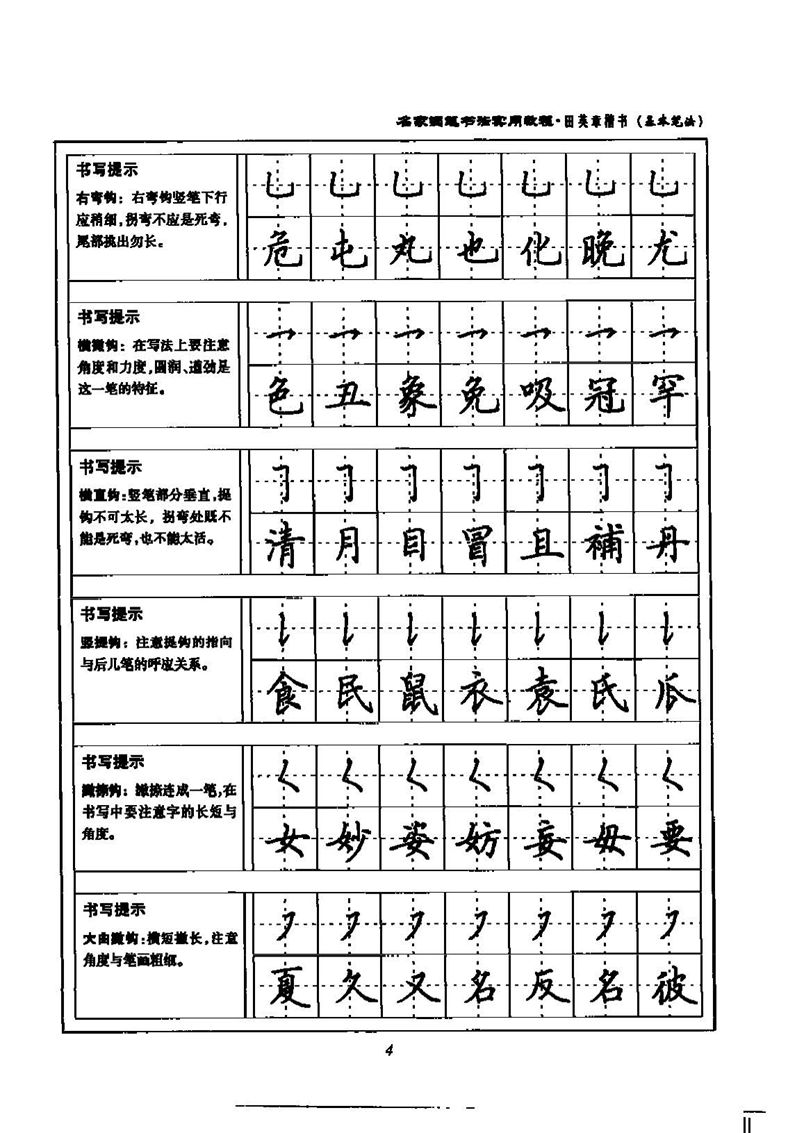 名家钢笔书法实用教程·田英章楷书（基本笔法）
书写提示
右弯钩：右弯钩竖笔下行
应稍细，拐弯不应是死弯，
尾部挑出勿长。
乚 乚 乚 乚 乚 乚 乚
危 屯 丸 也 化 晚 尤
书写提示
横撇钩：在写法上要注意
角度和力度，圆润、遒劲是
这一笔的特征。
乛 乛 乛 乛 乛 乛 乛
色 丑 象 免 吸 冠 罕
书写提示
横直钩：竖笔部分垂直，提
钩不可太长，拐弯处既不
能是死弯，也不能太活。
𠃌 𠃌 𠃌 𠃌 𠃌 𠃌 𠃌
清 月 目 冒 且 補 丹
书写提示
竖提钩：注意提钩的指向
与后几笔的呼应关系。
𠄌 𠄌 𠄌 𠄌 𠄌 𠄌 𠄌
食 民 鼠 衣 袁 氏 瓜
书写提示
撇捺钩：撇捺连成一笔，在
书写中要注意字的长短与
角度。
𡿨 𡿨 𡿨 𡿨 𡿨 𡿨 𡿨
女 妙 姿 妨 妄 毋 要
书写提示
大曲撇钩：横短撇长，注意
角度与笔画粗细。
㇇ ㇇ ㇇ ㇇ ㇇ ㇇ ㇇
夏 久 又 名 反 名 彼
4
II